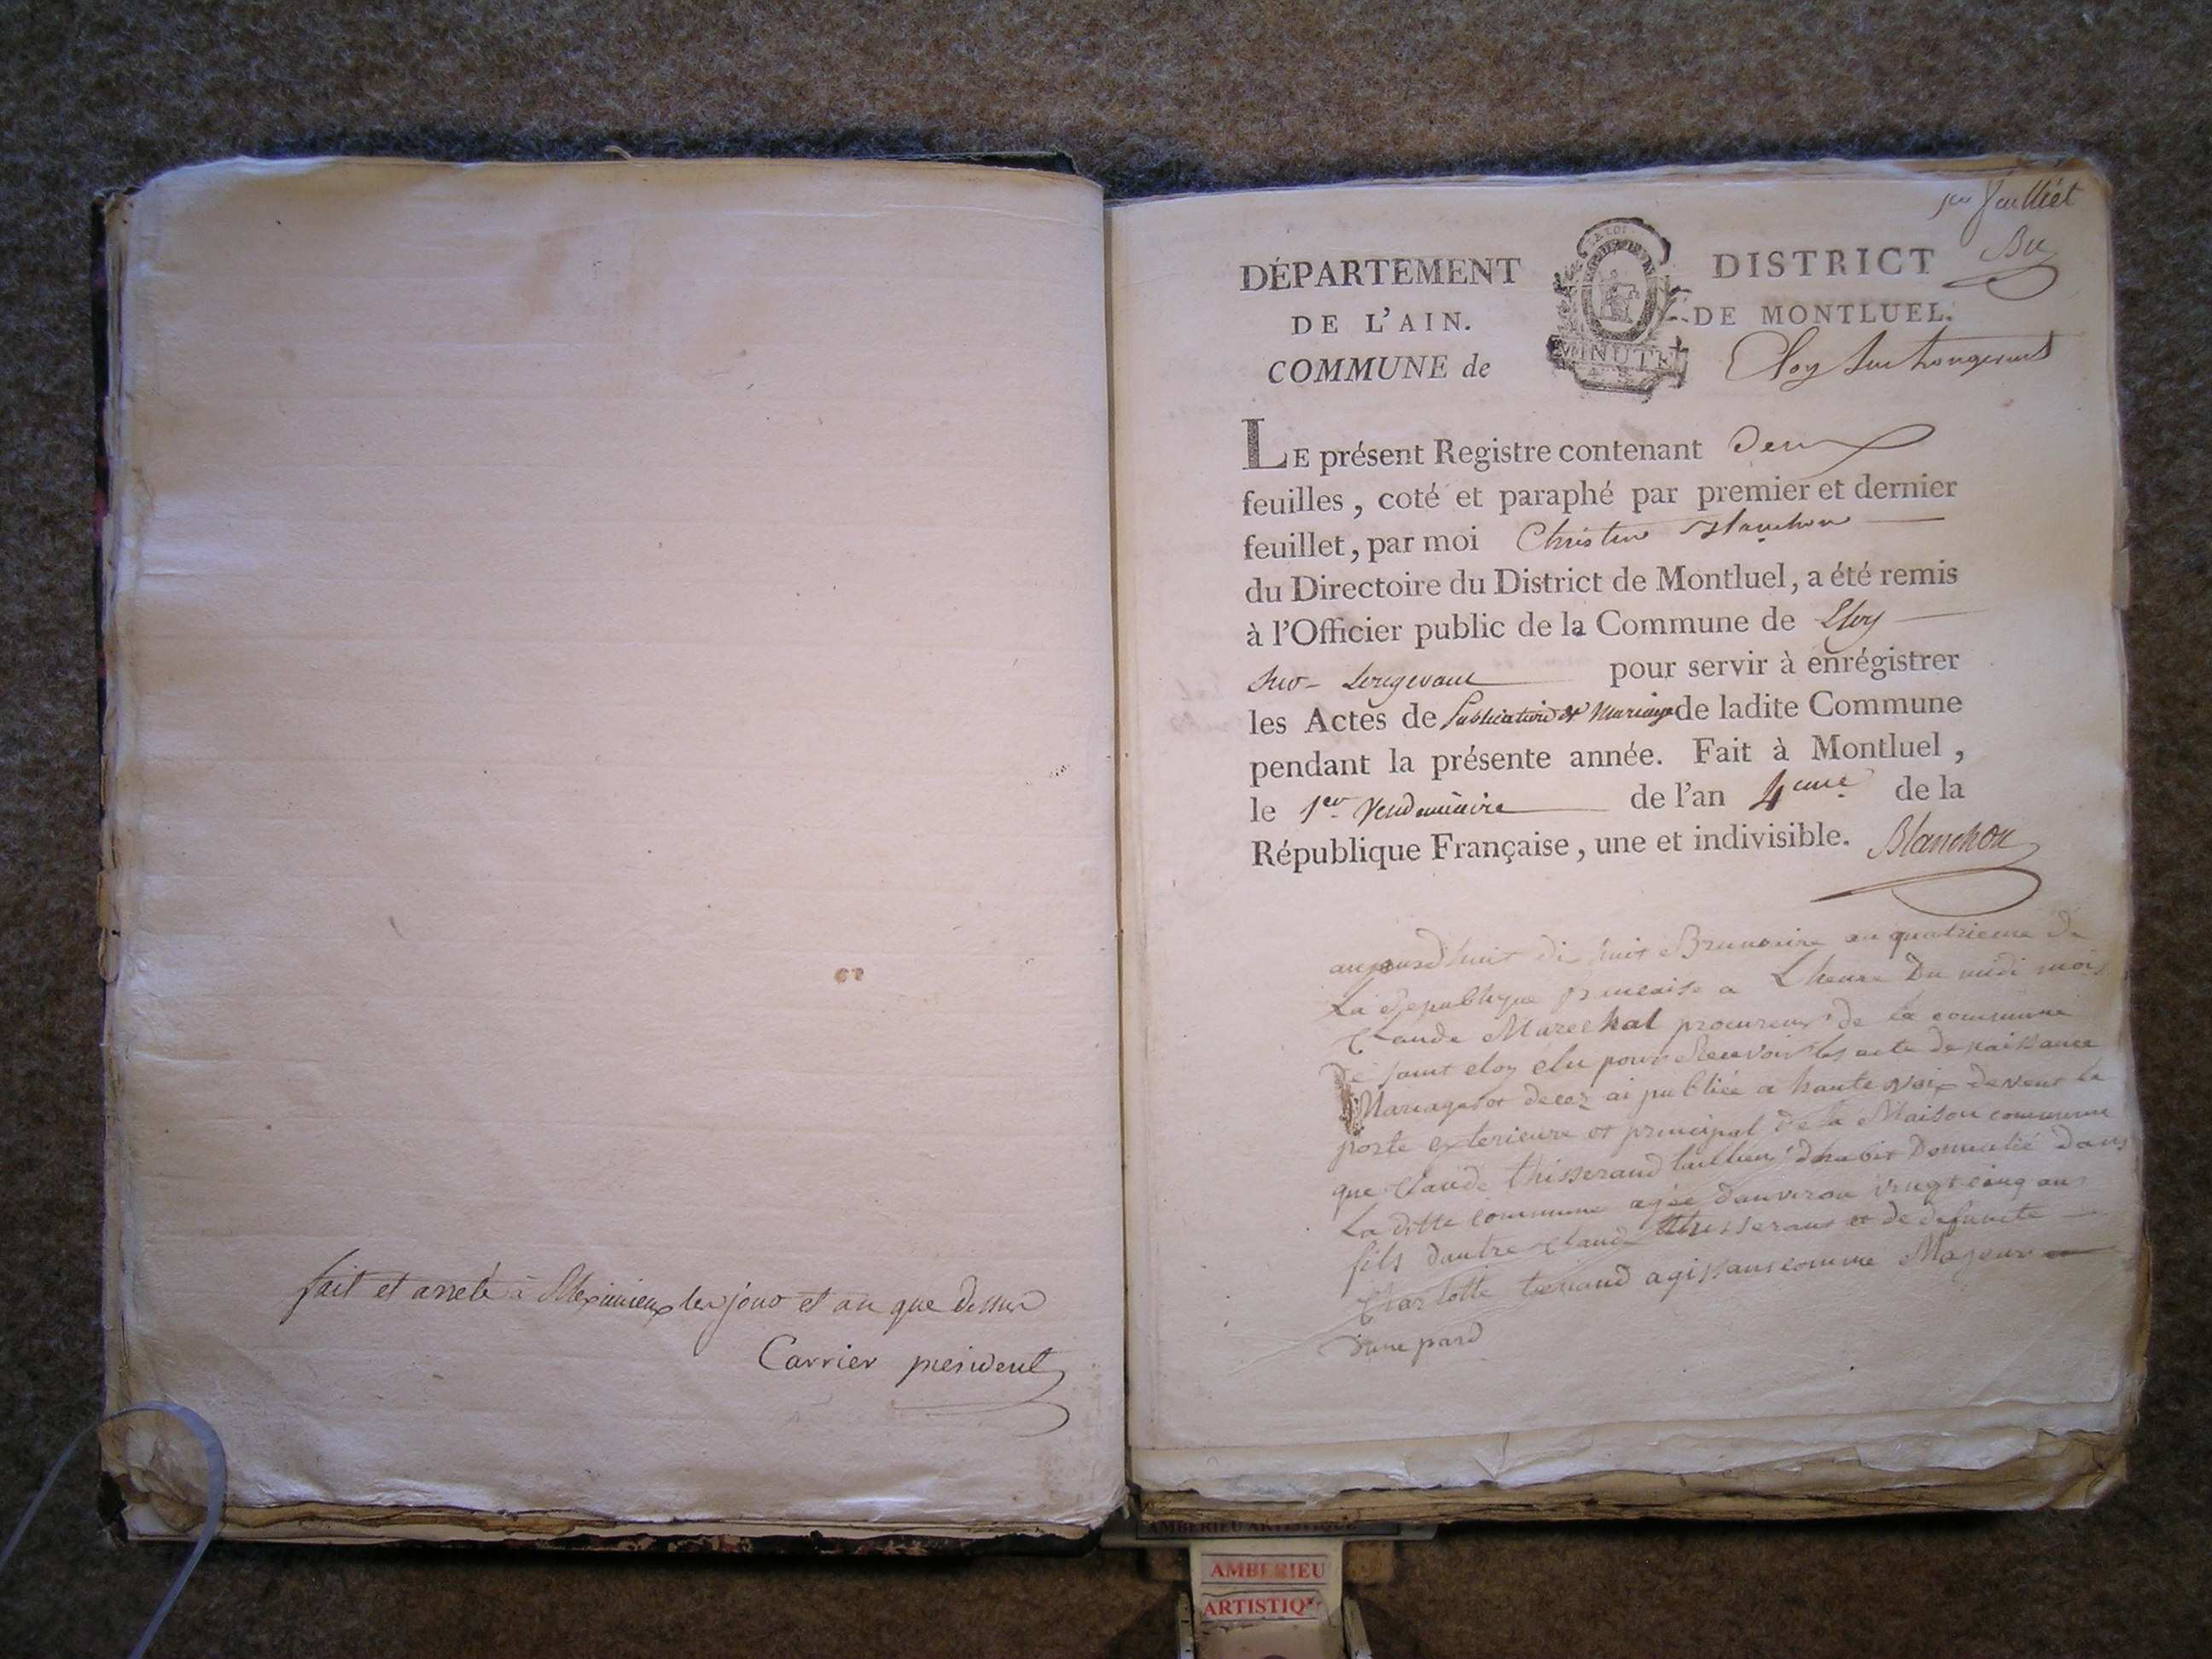 fait et arreté à Meximieux les jour et an que dessus
Carrier president
1er feuillet
DÉPARTEMENT
DE L'AIN.
COMMUNE de
LA LOI
MINUTE
DISTRICT
DE MONTLUEL.
Eloy sur Longevant
LE présent Registre contenant deux
feuilles, coté et paraphé par premier et dernier
feuillet, par moi Christin Blanchon
du Directoire du District de Montluel, a été remis
à l'Officier public de la Commune de Eloy
sur Longevant pour servir à enrégistrer
les Actes de Publication de Mariage de ladite Commune
pendant la présente année. Fait à Montluel,
le 1er Vendemiaire de l'an 4eme de la
République Française, une et indivisible. Blanchon
aujourdhuit dix huit Brumaire an quatrieme de
La Republique francaise a Lheure Du midi moi
Claude Marechal procureur de la commune
De saint eloy elu pour Recevoir les acte de naissance
Mariages et decez ai publiée a haute voix devent la
porte exterieure et principal de la Maison commune
que Claude thisserand Domicilié dans
La ditte commune agée danviron vingt cinq ans
fils dautre Claude thisserand et de defuncte
Charlotte tenaud agissant comme Majeur
dune pard
AMBERIEU ARTISTIQUE
AMBERIEU
ARTISTIQ